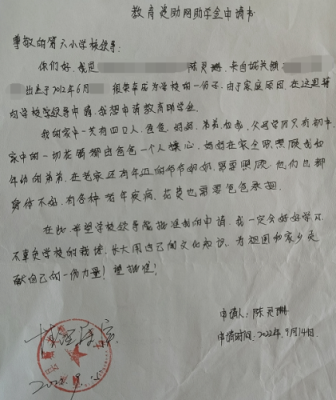 教育资助网助学金申请书
尊敬的第六小学校领导：
你们好，我是 陈灵琳，来自城关镇
出生于2012年6月 很荣幸成为学校的一份子。由于家庭原因，在这里希
向学校领导申请，我想申请教育助学金。
我的家中一共有四口人，爸爸，妈妈，弟弟，和我，父母学历只有初中
家中的一切花销都由爸爸一个人操心，妈妈在家全职照顾我和
年幼的弟弟，在老家还有年迈的爷爷奶奶需要照顾，他们也都
身体不好，有各种老年疾病，花费也需要爸爸承担。
在此希望学校领导能批准我的申请，我一定会好好学习
不辜负学校的栽培，长大用自己的文化知识，为祖国和家乡贡
献自己的一份力量！望批准！
申请人：陈灵琳
申请时间：2022年9月14日